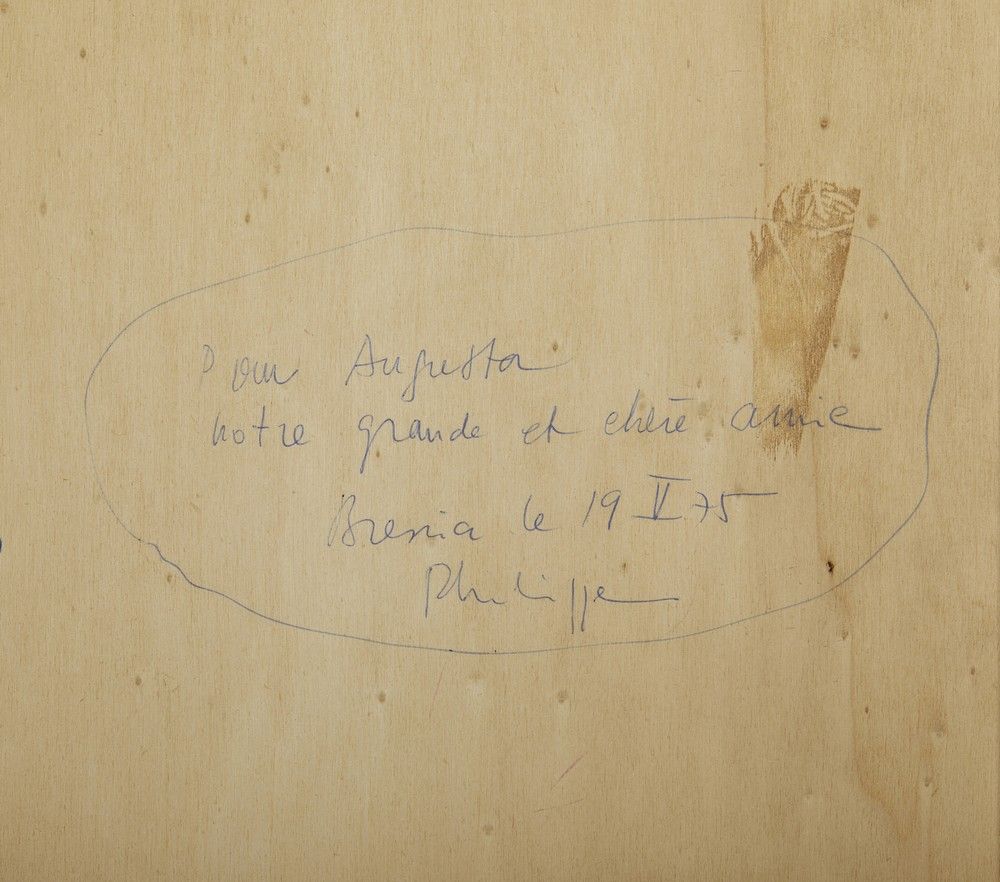 Pour Augusta
notre grande et chère amie
Brescia le 19 II 75
Philippe